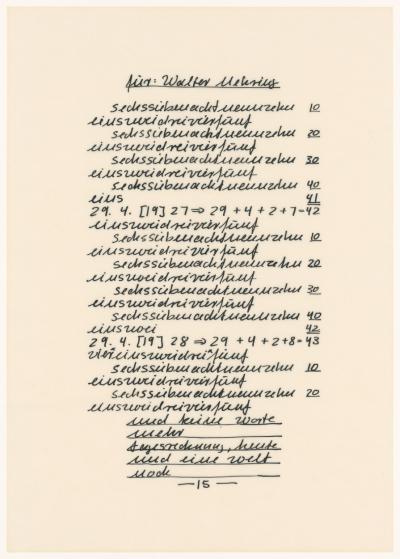 für: Walter Mehring
sechssiebenachtneunzehn 10
einszweidreivierfünf
sechssiebenachtneunzehn 20
einszweidreivierfünf
sechssiebenachtneunzehn 30
einszweidreivierfünf
sechssiebenachtneunzehn 40
eins 41
29. 4. [19] 27 ⇒ 29 + 4 + 2 + 7 = 42
einszweidreivierfünf
sechssiebenachtneunzehn 10
einszweidreivierfünf
sechssiebenachtneunzehn 20
einszweidreivierfünf
sechssiebenachtneunzehn 30
einszweidreivierfünf
sechssiebenachtneunzehn 40
einszwei 42
29. 4. [19] 28 ⇒ 29 + 4 + 2 + 8 = 43
einszweidreifünf
sechssiebenachtneunzehn 10
einszweidreivierfünf
sechssiebenachtneunzehn 20
einszweidreivierfünf
und keine worte
mehr
tagesrechnung, heute
und eine welt
noch
— 15 —